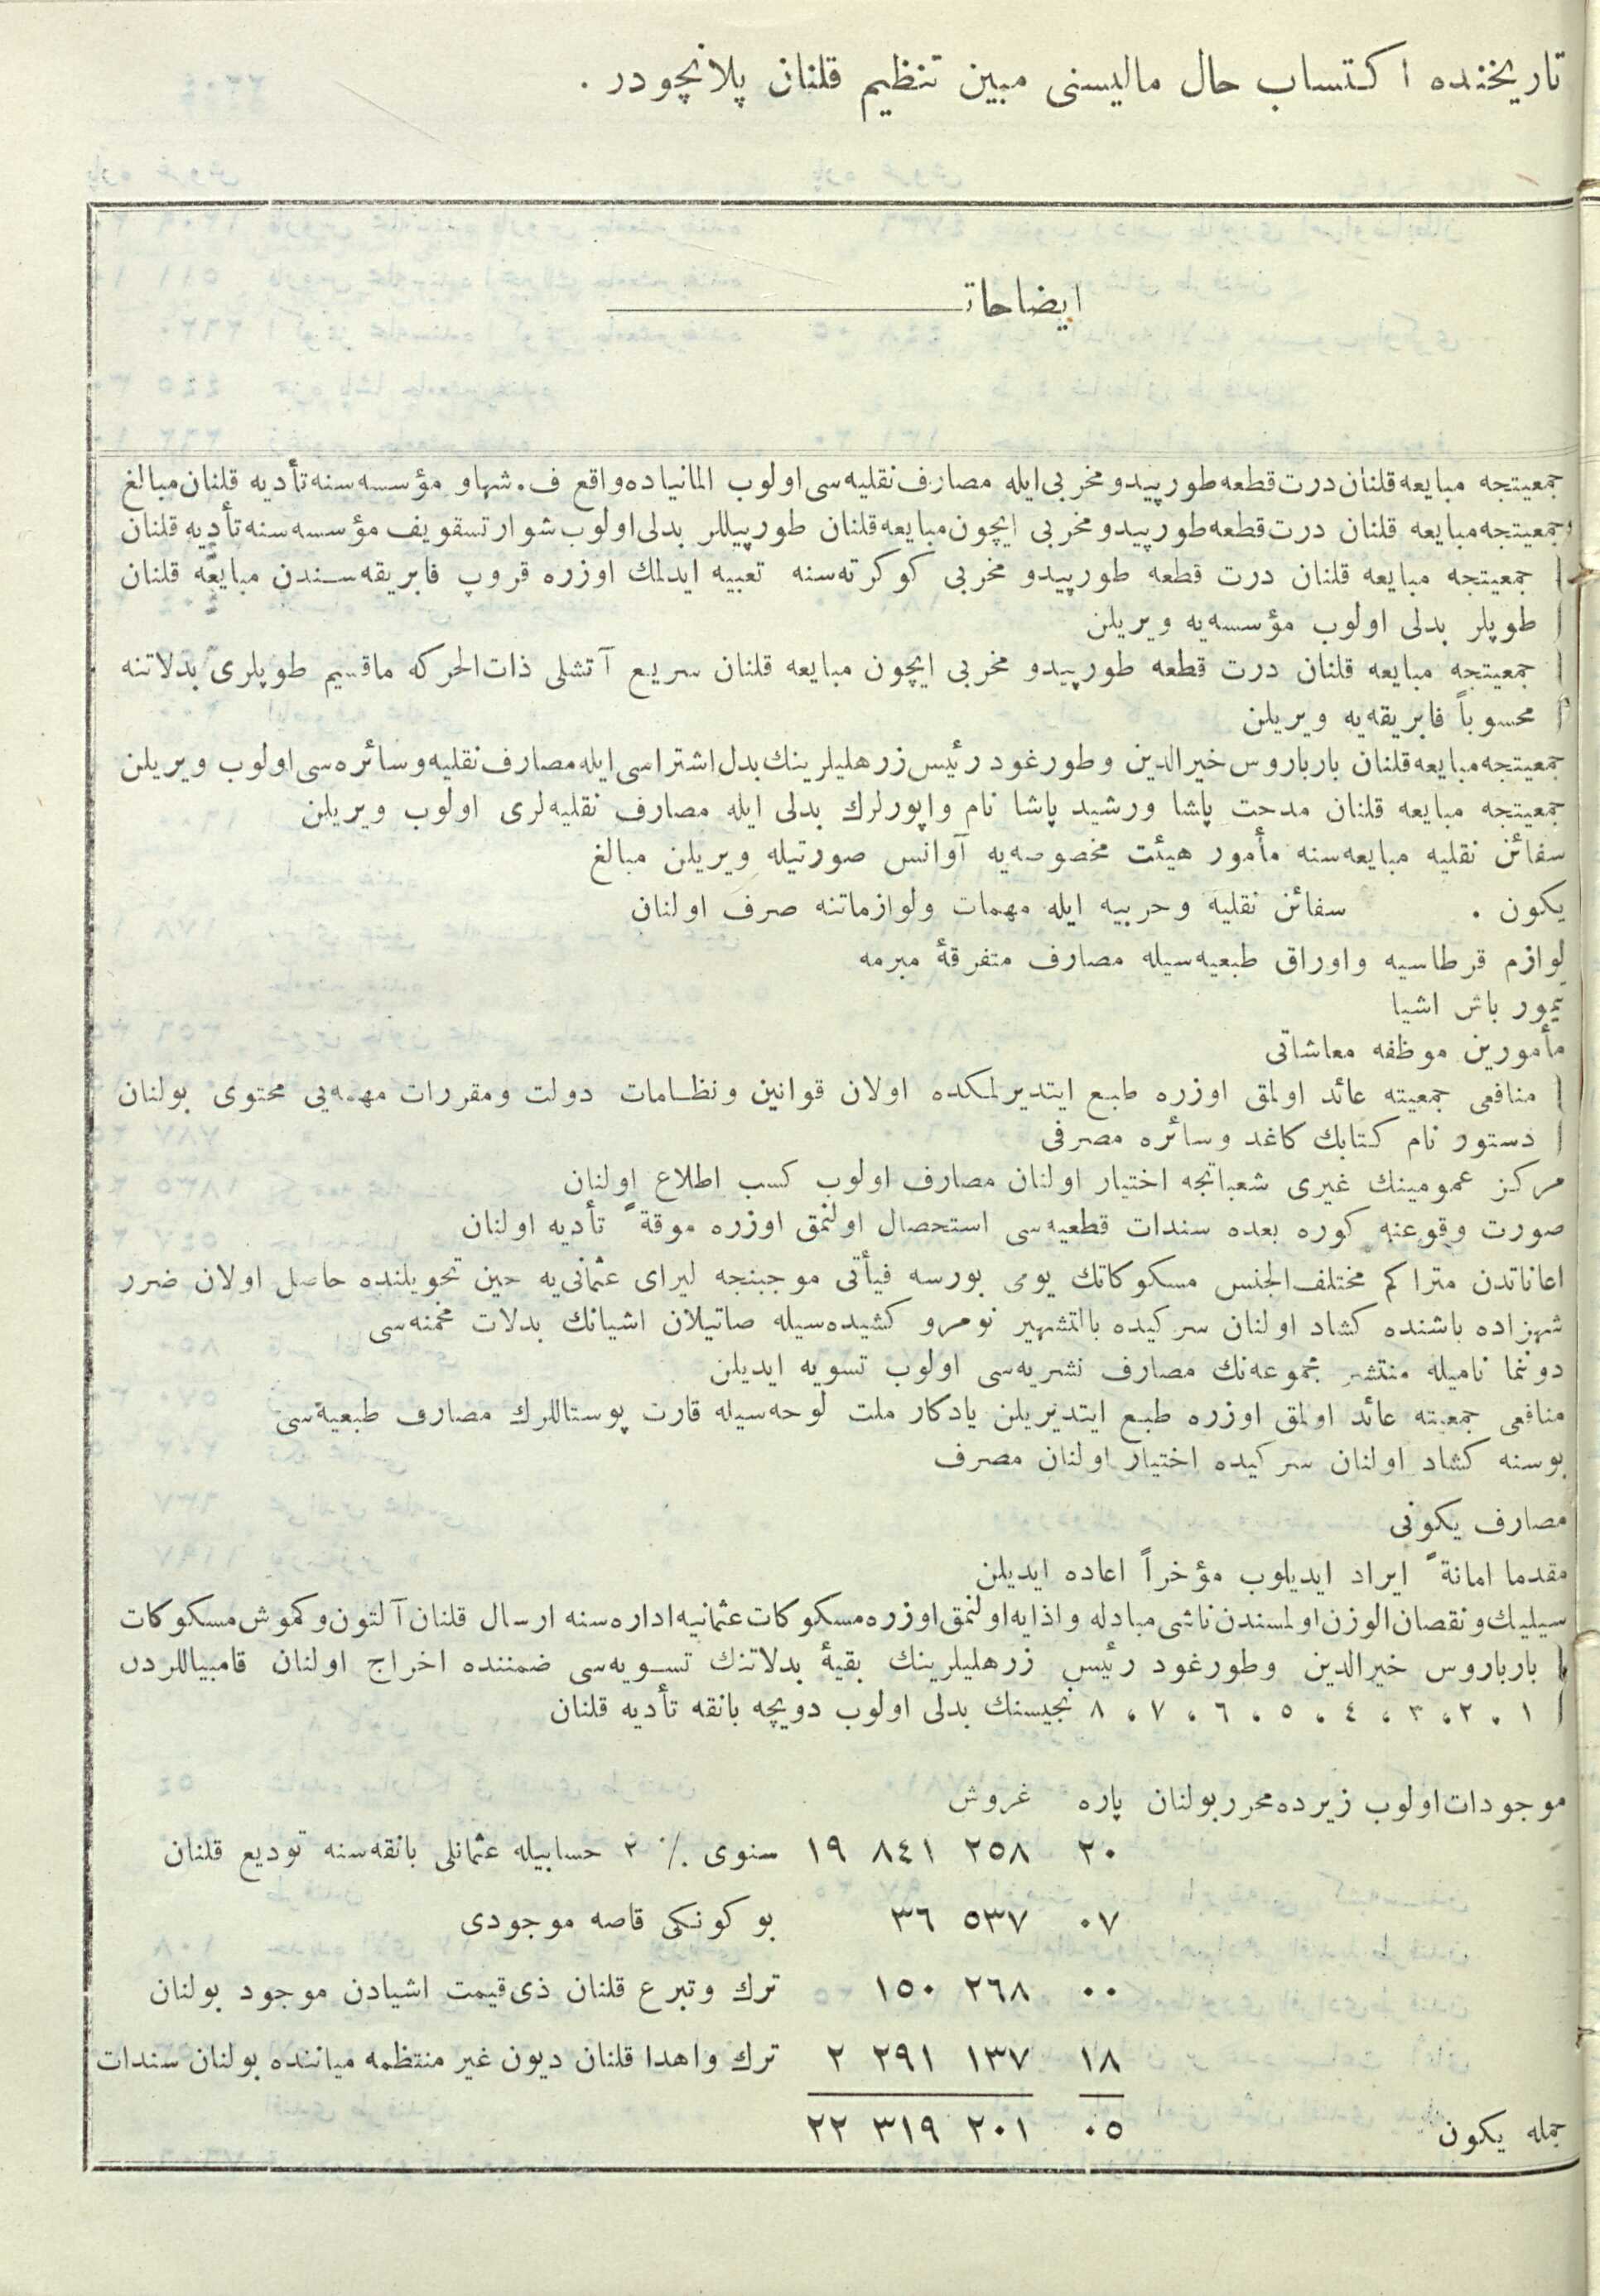 تاريخنده اكتساب حال ماليسنى مبين تنظيم قلنان پلانچودر .
ايضاحات
جمعيتجه مبايعه قلنان درت قطعه طورپيدو مخربى ايله مصارف نقليه‌سى اولوب المانياده واقع ف . شهاو مؤسسه‌سنه تأديه قلنان مبالغ
جمعيتجه مبايعه قلنان درت قطعه طورپيدو مخربى ايچون مبايعه قلنان طورپيللر بدلى اولوب شوارتسقويف مؤسسه‌سنه تأديه قلنان
جمعيتجه مبايعه قلنان درت قطعه طورپيدو مخربى كوكرته‌سنه تعبيه ايدلمك اوزره قروپ فابريقه‌سندن مبايعه قلنان
طوپلر بدلى اولوب مؤسسه‌يه ويريلن
جمعيتجه مبايعه قلنان درت قطعه طورپيدو مخربى ايچون مبايعه قلنان سريع آتشلى ذات‌الحركه ماقسيم طوپلرى بدلاتنه
محسوباً فابريقه‌يه ويريلن
جمعيتجه مبايعه قلنان بارباروس خيرالدين وطورغود رئيس زرهليلرينك بدل اشتراسى ايله مصارف نقليه وسائره‌سى اولوب ويريلن
جمعيتجه مبايعه قلنان مدحت پاشا ورشيد پاشا نام واپورلرك بدلى ايله مصارف نقليه‌لرى اولوب ويريلن
سفائن نقليه مبايعه‌سنه مأمور هيئت مخصوصه‌يه آوانس صورتيله ويريلن مبالغ
يكون . سفائن نقليه وحربيه ايله مهمات ولوازماتنه صرف اولنان
لوازم قرطاسيه واوراق طبعيه‌سيله مصارف متفرقۀ مبرمه
تيمور باش اشيا
مأمورين موظفه معاشاتى
منافعى جمعيته عائد اولمق اوزره طبع ايتديرلمكده اولان قوانين ونظامات دولت ومقررات مهمه‌يى محتوى بولنان
دستور نام كتابك كاغد وسائره مصرفى
مركز عمومينك غيرى شعباتجه اختيار اولنان مصارف اولوب كسب اطلاع اولنان
صورت وقوعنه كوره بعده سندات قطعيه‌سى استحصال اولنمق اوزره موقةً تأديه اولنان
اعاناتدن متراكم مختلف‌الجنس مسكوكاتك يومى بورسه فيأتى موجبنجه ليراى عثمانى‌يه حين تحويلنده حاصل اولان ضرر
شهزاده باشنده كشاد اولنان سركيده بالتشهير نومرو كشيده‌سيله صاتيلان اشيانك بدلات مخمنه‌سى
دوننما ناميله منتشر مجموعه‌نك مصارف نشريه‌سى اولوب تسويه ايديلن
منافعى جمعيته عائد اولمق اوزره طبع ايتديريلن يادكار ملت لوحه‌سيله قارت پوستاللرك مصارف طبعيه‌سى
بوسنه كشاد اولنان سركيده اختيار اولنان مصرف
مصارف يكونى
مقدما امانةً ايراد ايديلوب مؤخراً اعاده ايديلن
سيليك ونقصان‌الوزن اولمسندن ناشى مبادله واذابه اولنمق اوزره مسكوكات عثمانيه اداره‌سنه ارسال قلنان آلتون وكموش مسكوكات
بارباروس خيرالدين وطورغود رئيس زرهليلرينك بقيۀ بدلاتنك تسويه‌سى ضمننده اخراج اولنان قامبياللردن
١ ، ٢ ، ٣ ، ٤ ، ٥ ، ٦ ، ٧ ، ٨ نجيسنك بدلى اولوب دويچه بانقه تأديه قلنان
موجودات اولوب زيرده محرر بولنان پاره غروش
٢٠ ٢٥٨ ٨٤١ ١٩ سنوى ٪ ٢ حسابيله عثمانلى بانقه‌سنه توديع قلنان
٠٧ ٥٣٧ ٣٦ بو كونكى قاصه موجودى
٠٠ ٢٦٨ ١٥٠ ترك وتبرع قلنان ذى‌قيمت اشيادن موجود بولنان
١٨ ١٣٧ ٢٩١ ٢ ترك واهدا قلنان ديون غير منتظمه مياننده بولنان سندات
جمله يكون ٠٥ ٢٠١ ٣١٩ ٢٢